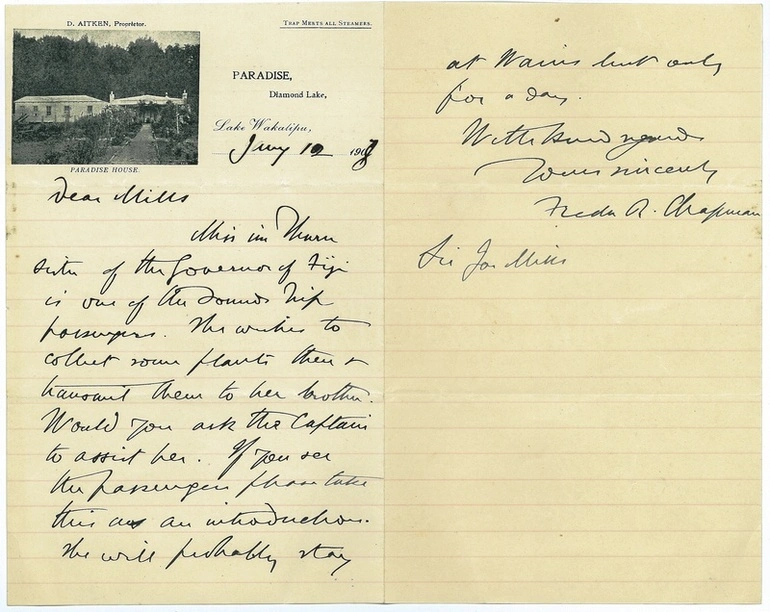 D. AITKEN, Proprietor.
TRAP MEETS ALL STEAMERS.
PARADISE,
Diamond Lake,
Lake Wakatipu,
Jany 12 190
PARADISE HOUSE.
Dear Mills
Miss im Thurn
sister of the Governor of Fiji
is one of the Sounds trip
passengers. She wishes to
collect some plants there &
transmit them to her brother.
Would you ask the Captain
to assist her. If you see
the passengers please take
this as an introduction.
She will probably stay
at but only
for a day.
With kind regards
Yours sincerely
Fredk R. Chapman
Sir Jas Mills